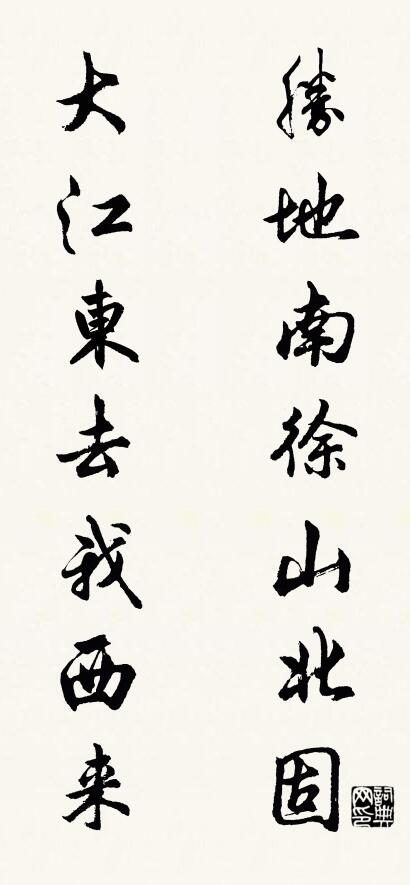 勝地南徐山北固
大江東去我西来
詞典网印